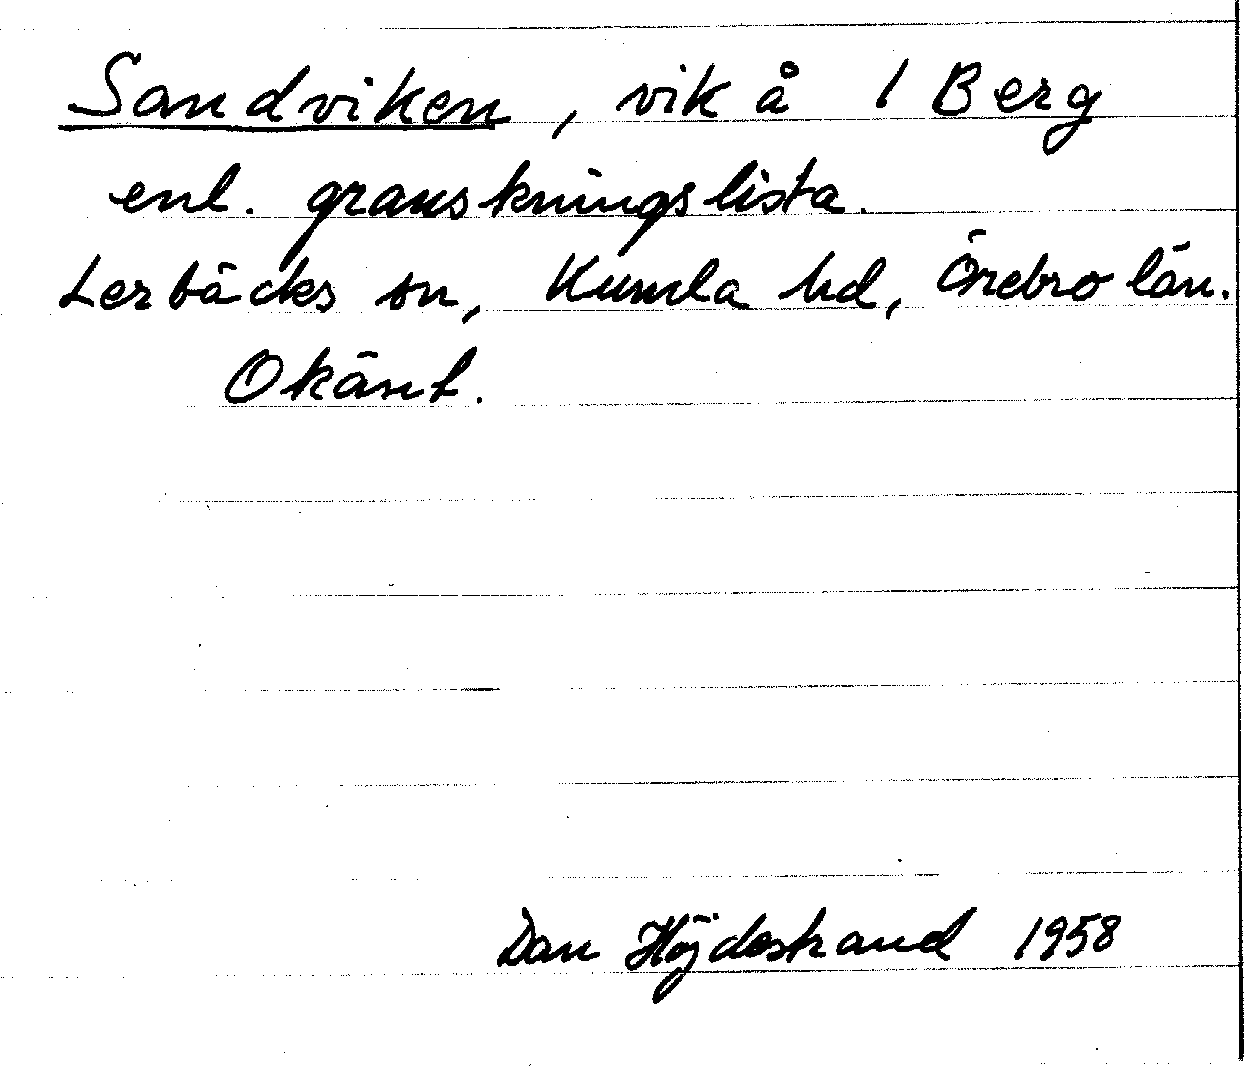 Sandviken, vik å 1 Berg
enl. granskningslista.
Lerbäcks sn, Kumla hd, Örebro län.
Okänt.
Dan Höjdestrand 1958